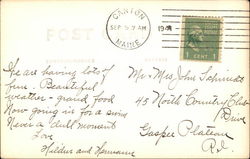 CANTON
SEP 5 7 AM
MAINE
POST
1 CENT 1
We are having lots of
fun. Beautiful
weather - grand food
Now going in for a swim
Never a dull moment
Love
and Hermann
Mr & Mrs John Schmidt
45 North Country Club
Drive
Rd.